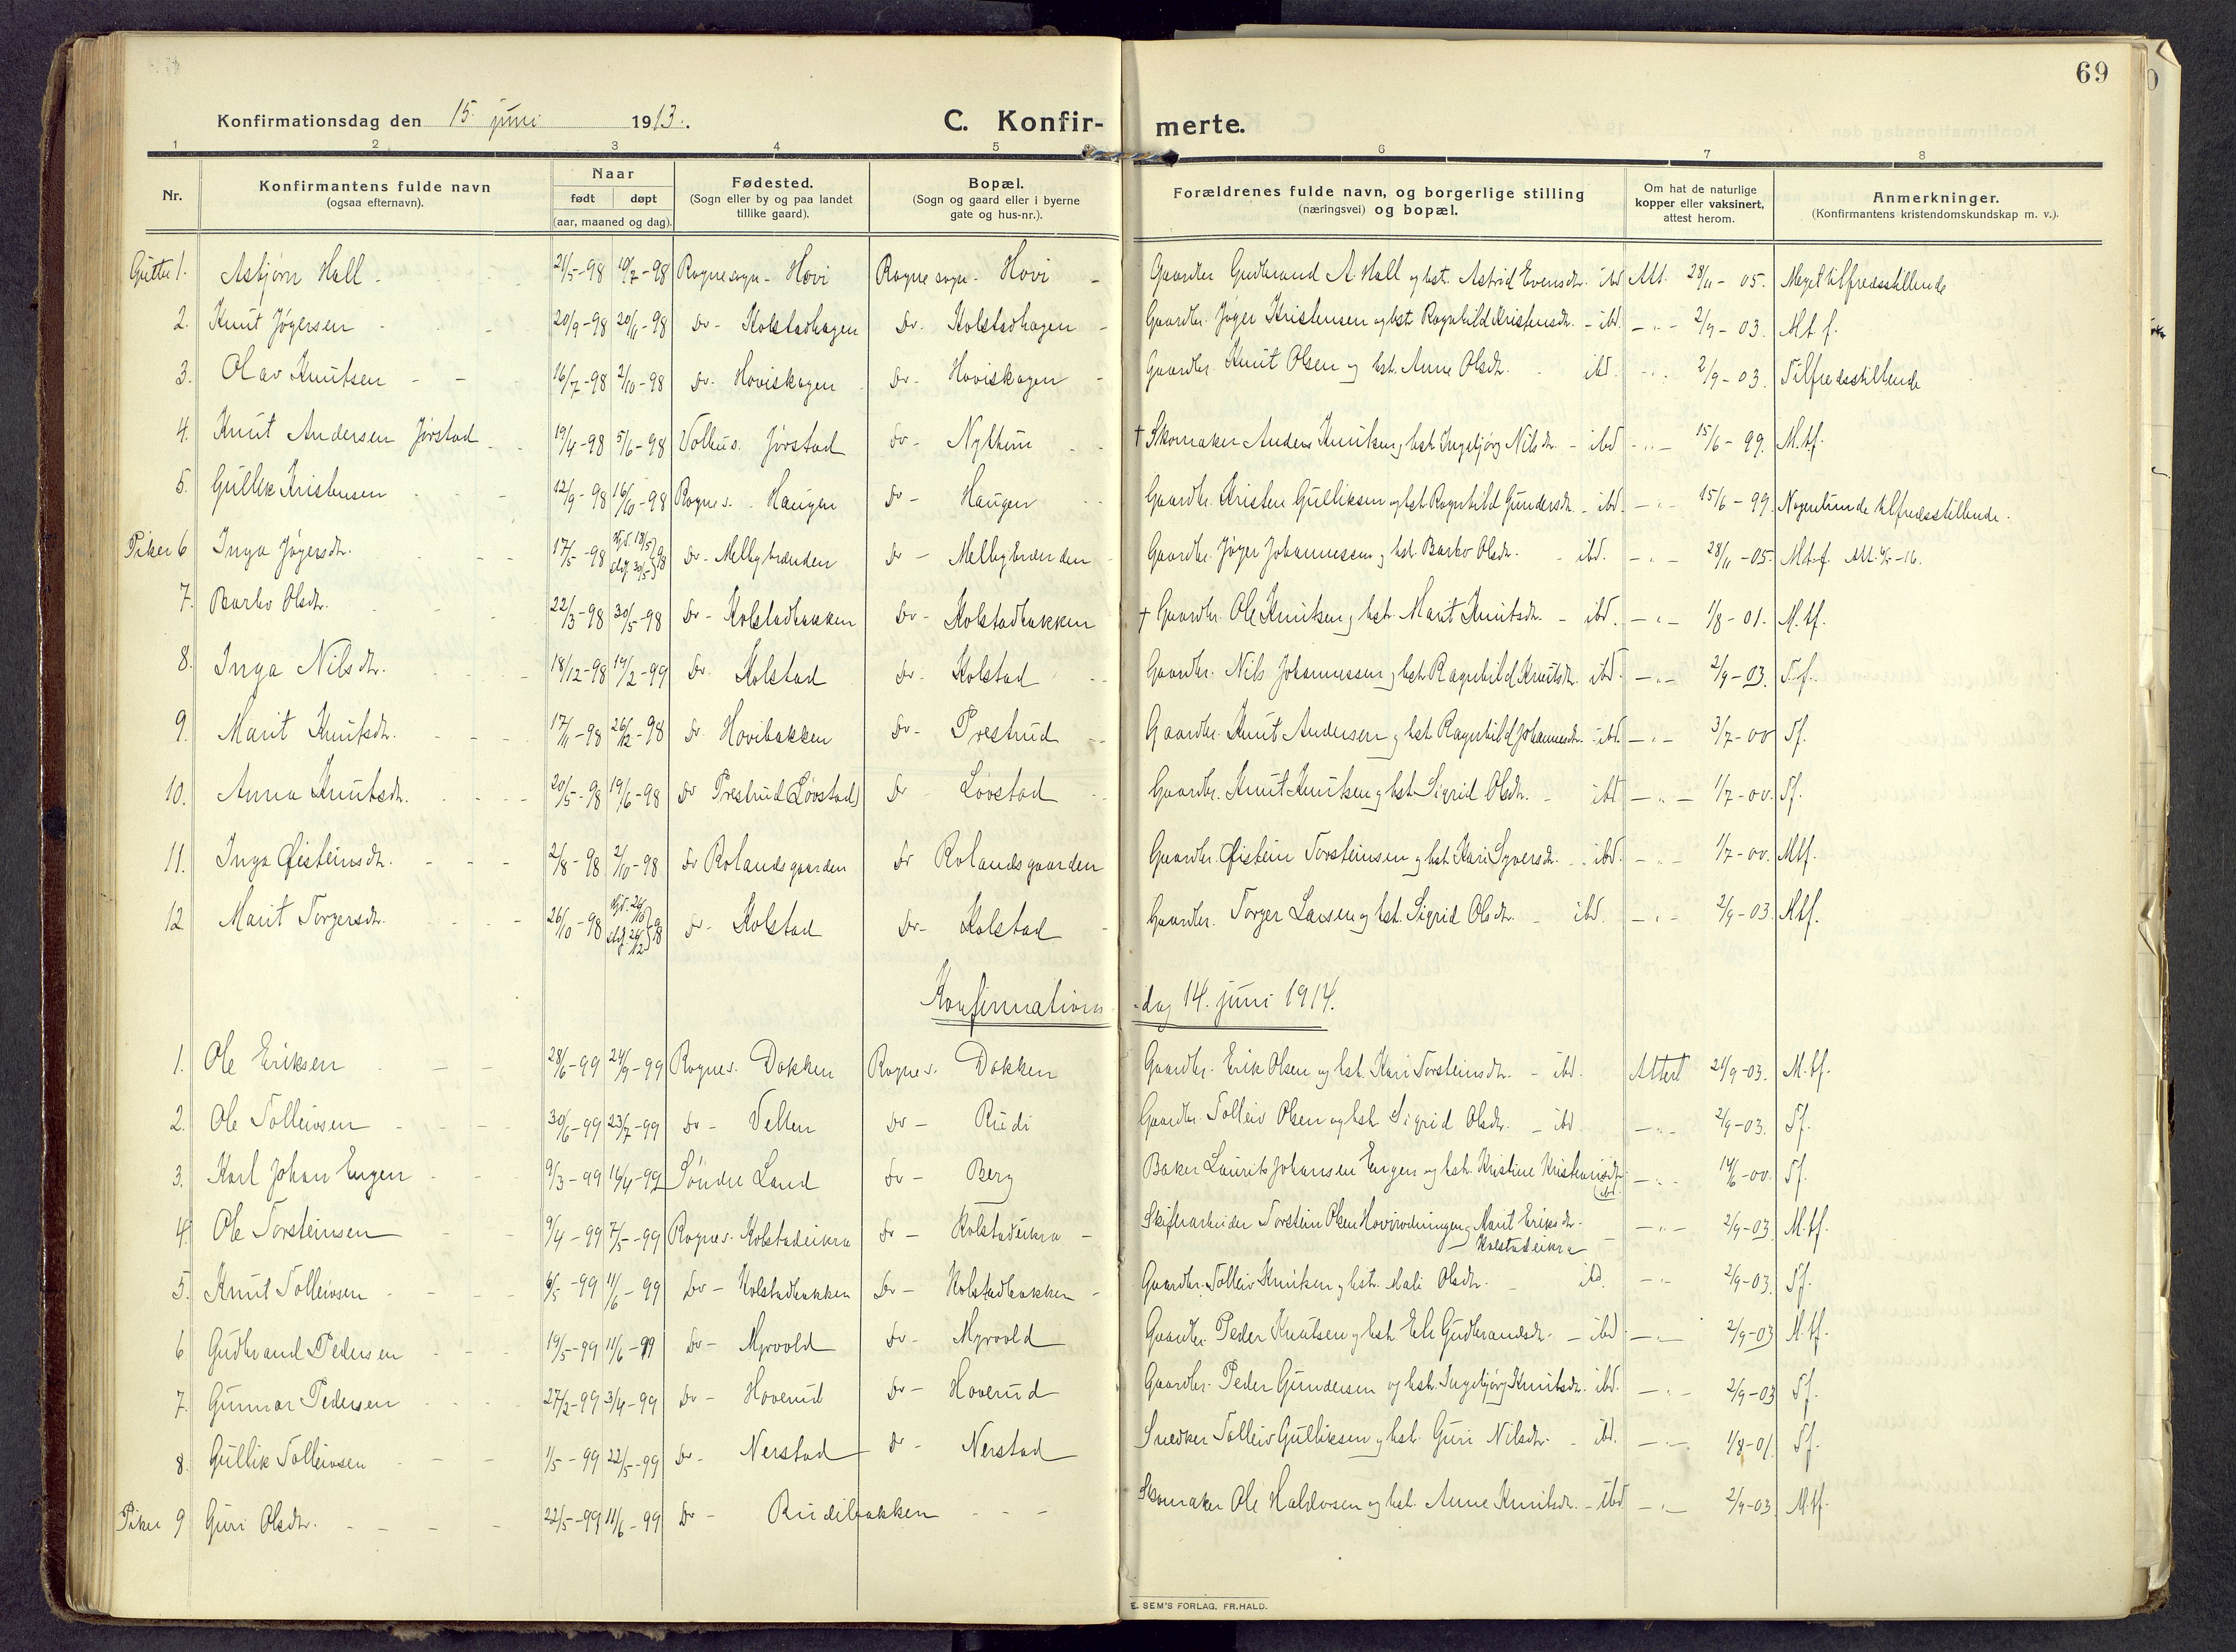 69
Konfirmationsdag den 15. juni 1913.
C. Konfir- merte.
1 2 3 4 5 6 7 8
Nr.
Konfirmantens fulde navn
(ogsaa efternavn).
Naar
født døpt
(aar, maaned og dag).
Fødested.
(Sogn eller by og paa landet
tillike gaard).
Bopæl.
(Sogn og gaard eller i byerne
gate og hus-nr.).
Forældrenes fulde navn, og borgerlige stilling
(næringsvei) og bopæl.
Om hat de naturlige
kopper eller vaksinert,
attest herom.
Anmerkninger.
(Konfirmantens kristendomskundskap m. v.).
Gutter 1. Asbjørn Hall - 21/5-98 10/7-98 Rogne sogn - Hovi Rogne sogn - Hovi - Gaardbr. Gudbrand A. Hall og hst. Astrid Evensdr. ibd Att. 28/11-05. Meget tilfredsstillende
2. Knut Jøgersen - - 20/9-98 20/11-98 Do- Kolstadhagen Do. Kolstadhagen - Gaardbr. Jøger Kristensen og hst. Ragnhild Kristensdr. - ibd. -"- 2/9-03. Mt f.
3. Olav Knutsen - - 16/7-98 2/10-98 Do- Hoviskagen Do- Hoviskagen - Gaardbr. Knut Olsen og hst. Anne Olsdr. - ibd. -"- 2/9-03. Tilfredsstillende
4. Knut Andersen Jørstad - 19/4-98 5/6-98 Volbus. Jørstad Do- Nythun - † Skomaker Anders Knutsen og hst. Ingebjørg Nilsdr. - ibd -"- 15/6-99. M.tf.
5. Gullik Kristensen - - 12/9-98 16/10-98 Rognes. Haugen Do- Haugen - Gaardbr. Kristen Gulliksen og hst. Ragnhild Gundersdr. - ibd. -"- 15/6-99. Nogenlunde tilfredsstillende.
Piker 6 Inga Jøgersdr. - - 17/5-98 Hjd. 18/5 stf. 30/5 98 Do- Melbybraaden Do- Melbybraaden Gaardbr. Jøger Johannessen og hst. Barbo Olsdr. - ibd. -"- 28/11-05. Mt.f.
7. Barbo Olsdr. - 22/3-98 30/5-98 Do- Kolstadbakken Do- Kolstadbakken † Gaardbr. Ole Knutsen og hst. Marit Knutsdr. - ibd. -"- 1/8-01. M.tf.
8. Inga Nilsdr. - 18/12-98 19/2-99 Do. Kolstad Do. Kolstad - Gaardbr. Nils Johannessen og hst. Ragnhild Knutsdr. ibd. -"- 2/9-03. T.f.
9. Marit Knutsdr. - - 17/11-98 26/12-98 Do. Hovibakken Do- Prestrud - Gaardbr. Knut Andersen og hst. Ragnhild Johannesdr. ibd. -"- 3/7-00 Tf.
10. Anna Knutsdr. - - 20/5-98 19/6-98 Do Prestrud (Løvstad) Do Løvstad - Gaardbr. Knut Knutsen og hst. Sigrid Olsdr. - ibd -"- 1/7-00. Tf.
11. Inga Øisteinsdr. - - 2/8-98 2/10-98 Do Rolandsgaarden Do Rolandsgaarden Gaardbr. Øistein Torsteinsen og hst. Kari Syversdr. - ibd. -"- 1/7-00. Mtf.
12 Marit Torgersdr. - - 26/10-98 Hjd. 26/10 stf. 26/12 98 Do- Kolstad Do- Kolstad - Gaardbr. Torger Larsen og hst. Sigrid Olsdr. - ibd. -"- 2/9-03. Mtf.
Konfirmations -dag 14. juni 1914.
1. Ole Eriksen - - 28/6-99 24/9-99 Rognes. Dokken Rognes. Dokken Gaardbr. Erik Olsen og hst. Kari Torsteinsdr. - ibd. Attest 21/9-03. M.tf.
2. Ole Tolleivsen - - 30/6-99 23/7-99 Do- Velten Do- Rudi Gaardbr. Tolleiv Olsen og hst. Sigrid Olsdr. - ibd -"- 2/9-03. Tf.
3. Karl Johan Engen - 9/3-99 16/4-99 Søndre Land Do- Berg Baker Laurits Johansen Engen og hst. Kristine Kristiansdr. (ibd. -"- 14/6-00. Tf.
4. Ole Torsteinsen - 9/4-99 7/5-99 Rognes. Kolstadeikra Do- Kolstadeikra - Skiferarbeider Torstein Olsen Hovirodningen og Marit Eriksdr. Kolstadeikra -"- 2/9-03 M.tf.
5. Knut Tolleivsen - - 6/5-99 11/6-99 Do- Kolstadbakken Do- Kolstadbakken - Gaardbr. Tolleiv Knutsen og hst. Mali Olsdr. - ibd. -"- 2/9-03. Tf.
6. Gudbrand Pedersen - 19/5-99 11/6-99 Do- Myrvold Do- Myrvold Gaardbr. Peder Knutsen og hst. Eli Gudbrandsdr. - ibd -"- 2/9-03 M.tf.
7. Gunnar Pedersen - - 27/2-99 3/4-99 Do- Hoverud Do- Hoverud Gaardbr. Peder Gundersen og hst. Ingebjørg Knutsdr. ibd. -"- 2/9-03 Tf.
8. Gullik Tolleivsen - - 1/5-99 22/5-99 Do- Nerstad Do- Nerstad Snedker Tolleiv Gulliksen og hst. Guri Nilsdr. - ibd. -"- 1/8-01. Tf.
Piker 9 Guri Olsdr. - - - 22/5-99 11/6-99 Do- Rudibakken - - - Skomaker Ole Haldorsen og hst. Anne Knutsdr. - ibd -"- 2/9-03. Mtf.
E. SEM'S FORLAG, FR.HALD.